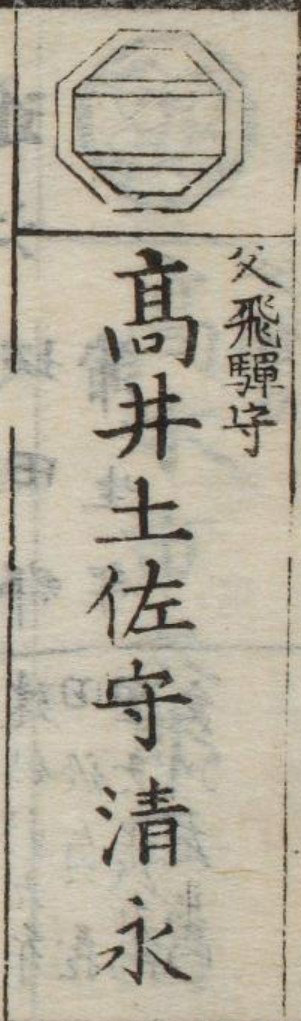 父飛騨守
髙井土佐守清永